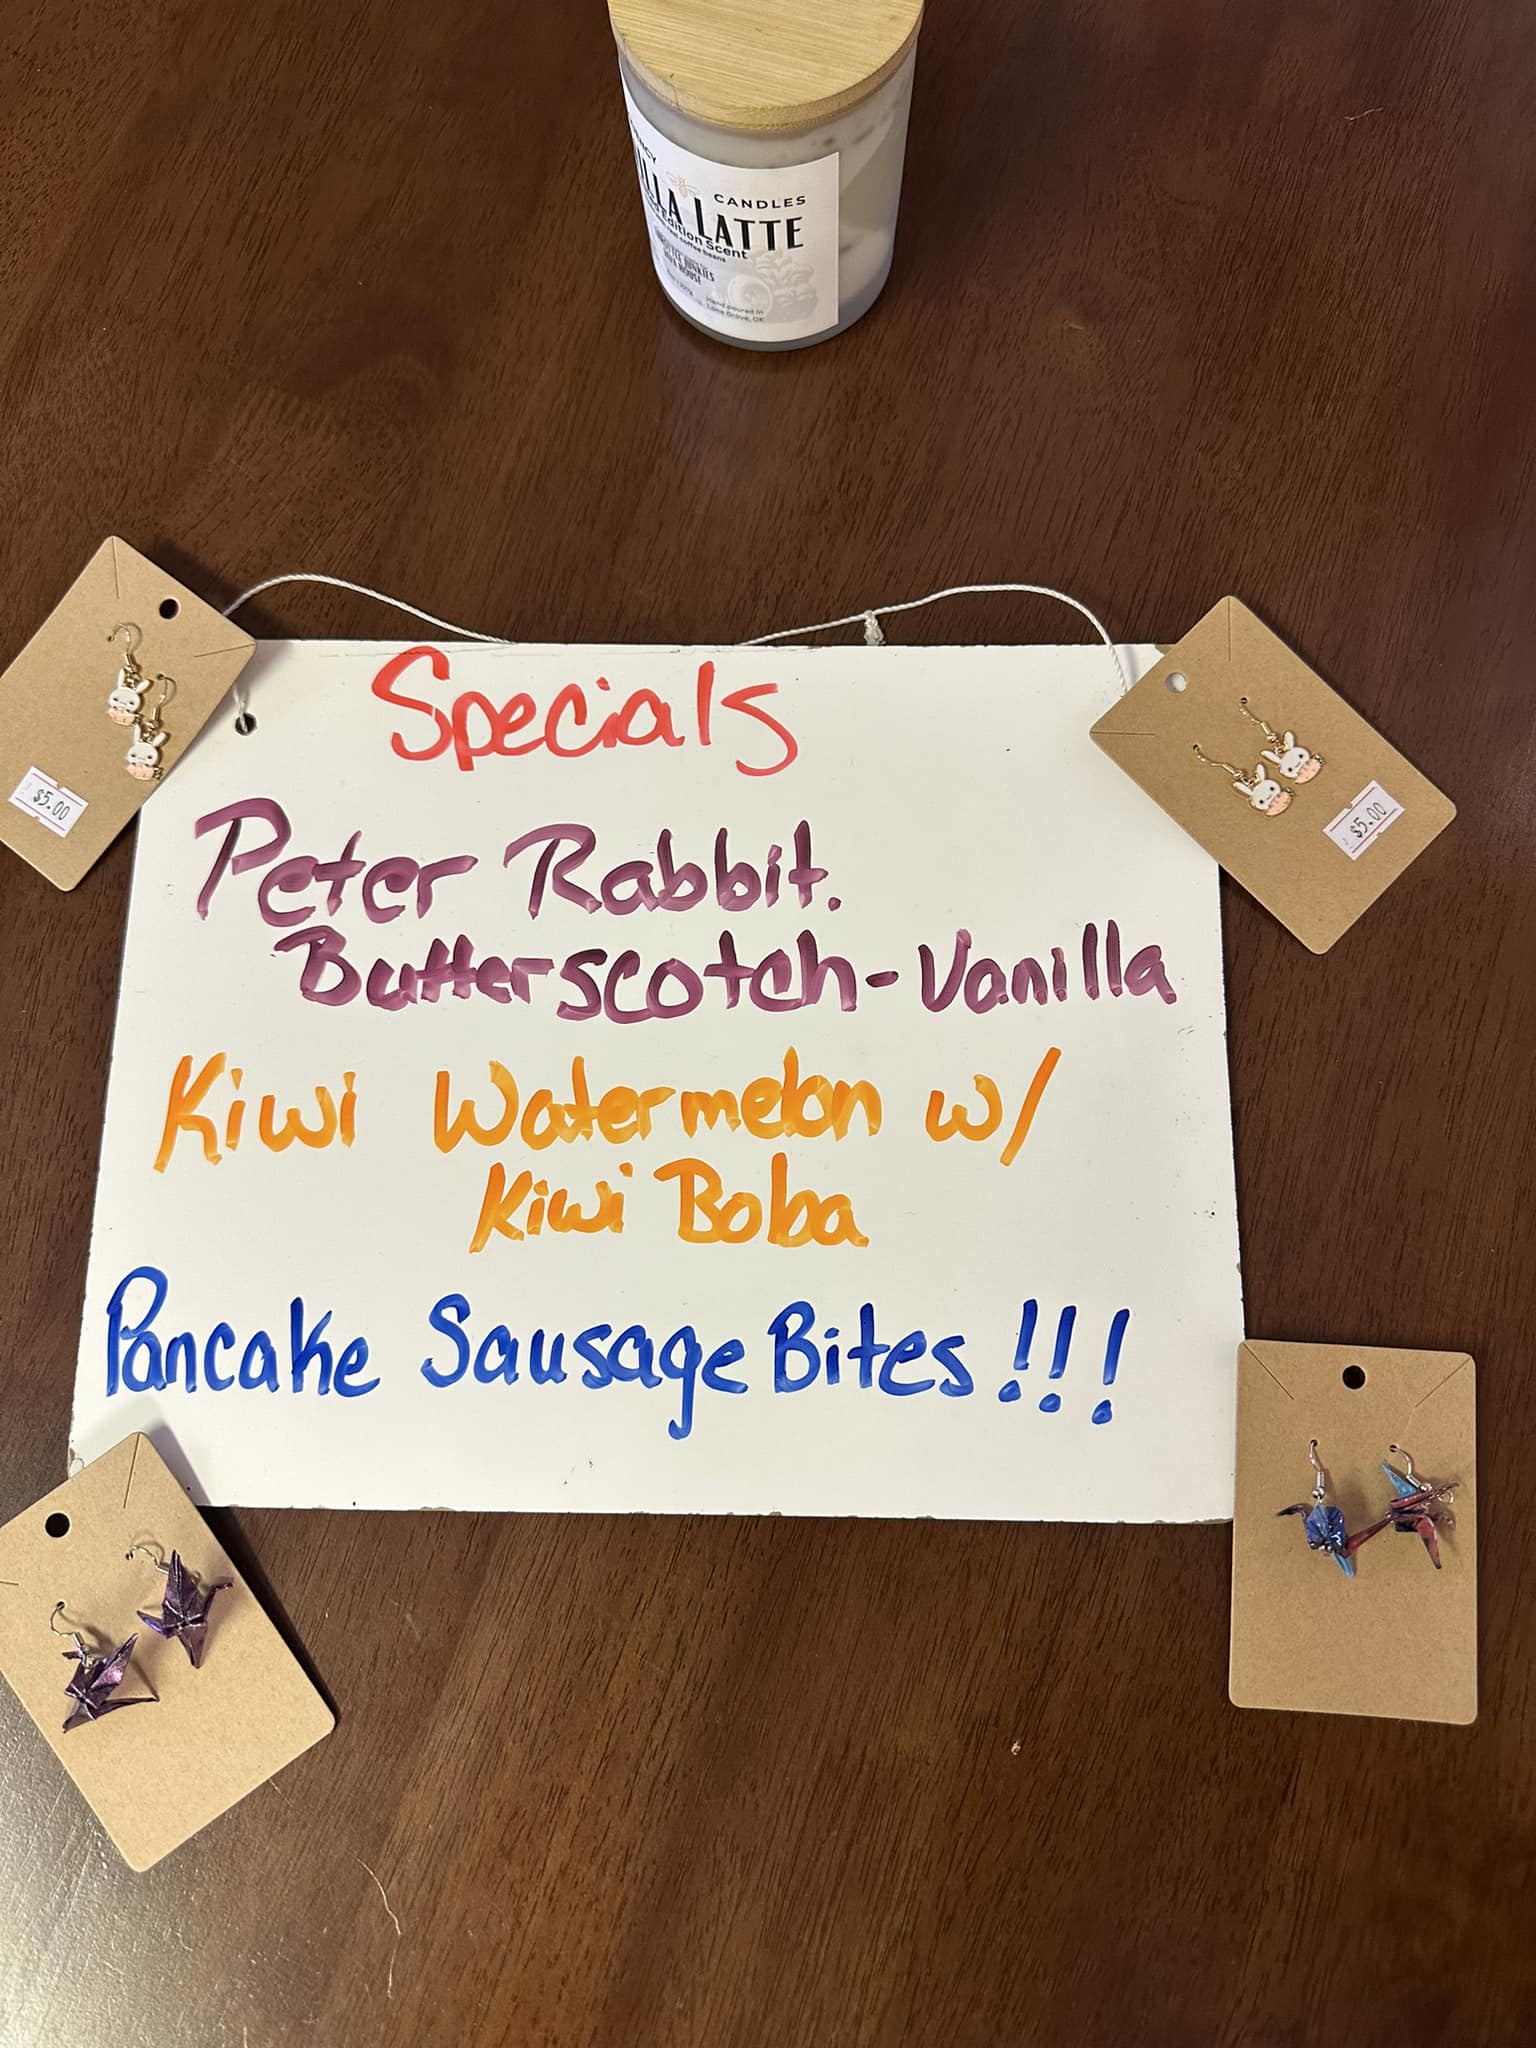 CANDLES
LATTE
Edition Scent
real coffee beans
Hand poured in
Grove, OK
Specials
$5.00
$5.00
Peter Rabbit.
Butterscotch-Vanilla
Kiwi Watermelon w/
Kiwi Boba
Pancake Sausage Bites!!!